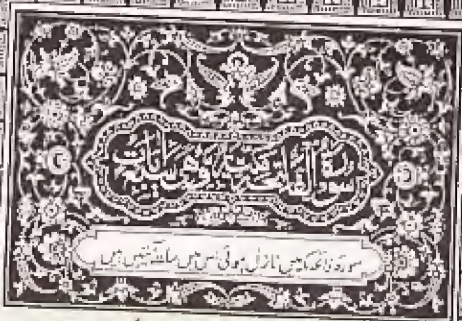 سورة الفاتحة مكية وهي سبع آيات
سورۃ فاتحہ مکہ میں نازل ہوئی اس میں سات آیتیں ہیں